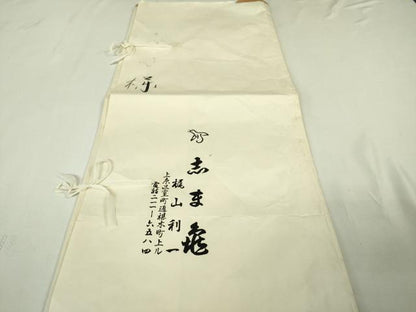 様
志ま亀
梶山利一
上京室町通椹木町上ル
電話二一一-六五八四